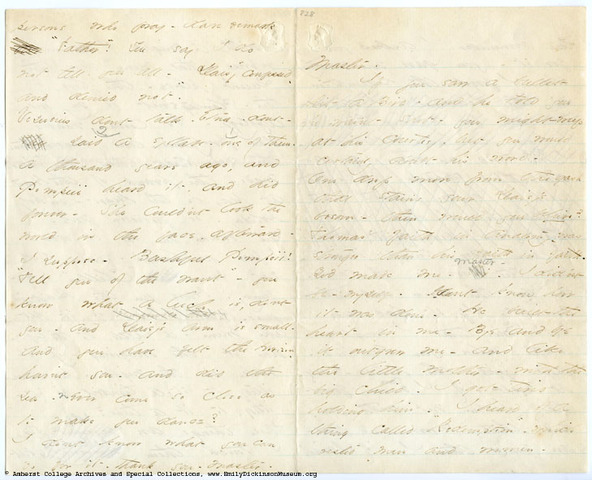 persons who pray - dare remark
"Father"! You say I do
not tell you all - Daisy "confessed -
and denied not."
Vesuvius dont talk - Etna - dont -
2 1
said a syllable - one of them -
a thousand years ago, and
Pompeii heard it, and hid
forever - She could'nt look the
world in the face, afterward -
I suppose - Bashful Pompeii!
"Tell you of the want" - you
know what a leech is, dont
you - and Daisy's arm is small -
and you have felt the horizon
hav'nt you - and did the
sea - never come so close as
to make you dance?
I dont know what you can
do for it - thank you - Master -
828
Master.
If you saw a bullet
hit a Bird - and he told you
he was'nt shot - you might weep
at his courtesy, but you would
certainly doubt his word -
One drop more from the gash
that stains your Daisy's
bosom - then would you believe?
Thomas' faith in Anatomy, was
stronger than his faith in faith.
God made me - Master
I did'nt
be - myself - I dont know how
it was done - He built the
heart in me - Bye and bye
it outgrew me - and like
the little mother - with the
big child - I got tired
holding him - I heard of a
thing called "Redemption" - which
rested men and women -
© Amherst College Archives and Special Collections, www.EmilyDickinsonMuseum.org